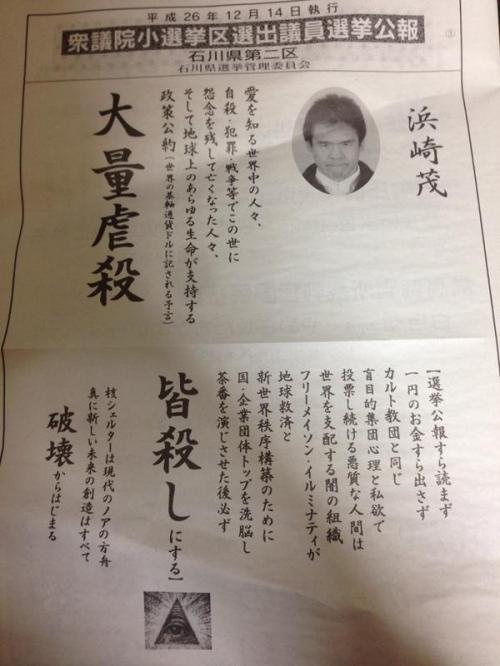 平成26年12月14日執行
衆議院小選挙区選出議員選挙公報
石川県第二区
石川県選挙管理委員会
③
浜崎茂
愛を知る世界中の人々、
自殺・犯罪・戦争等でこの世に
怨念を残して亡くなった人々、
そして地球上のあらゆる生命が支持する
政策公約(世界の基軸通貨ドルに記される予言)
大量虐殺
【選挙公報すら読まず
一円のお金すら出さず
カルト教団と同じ
盲目的集団心理と私欲で
投票し続ける悪質な人間は
世界を支配する闇の組織
フリーメイソン・イルミナティが
地球救済と
新世界秩序構築のために
国・企業団体トップを洗脳し
茶番を演じさせた後必ず
皆殺しにする】
核シェルターは現代のノアの方舟
真に新しい未来の創造はすべて
破壊からはじまる